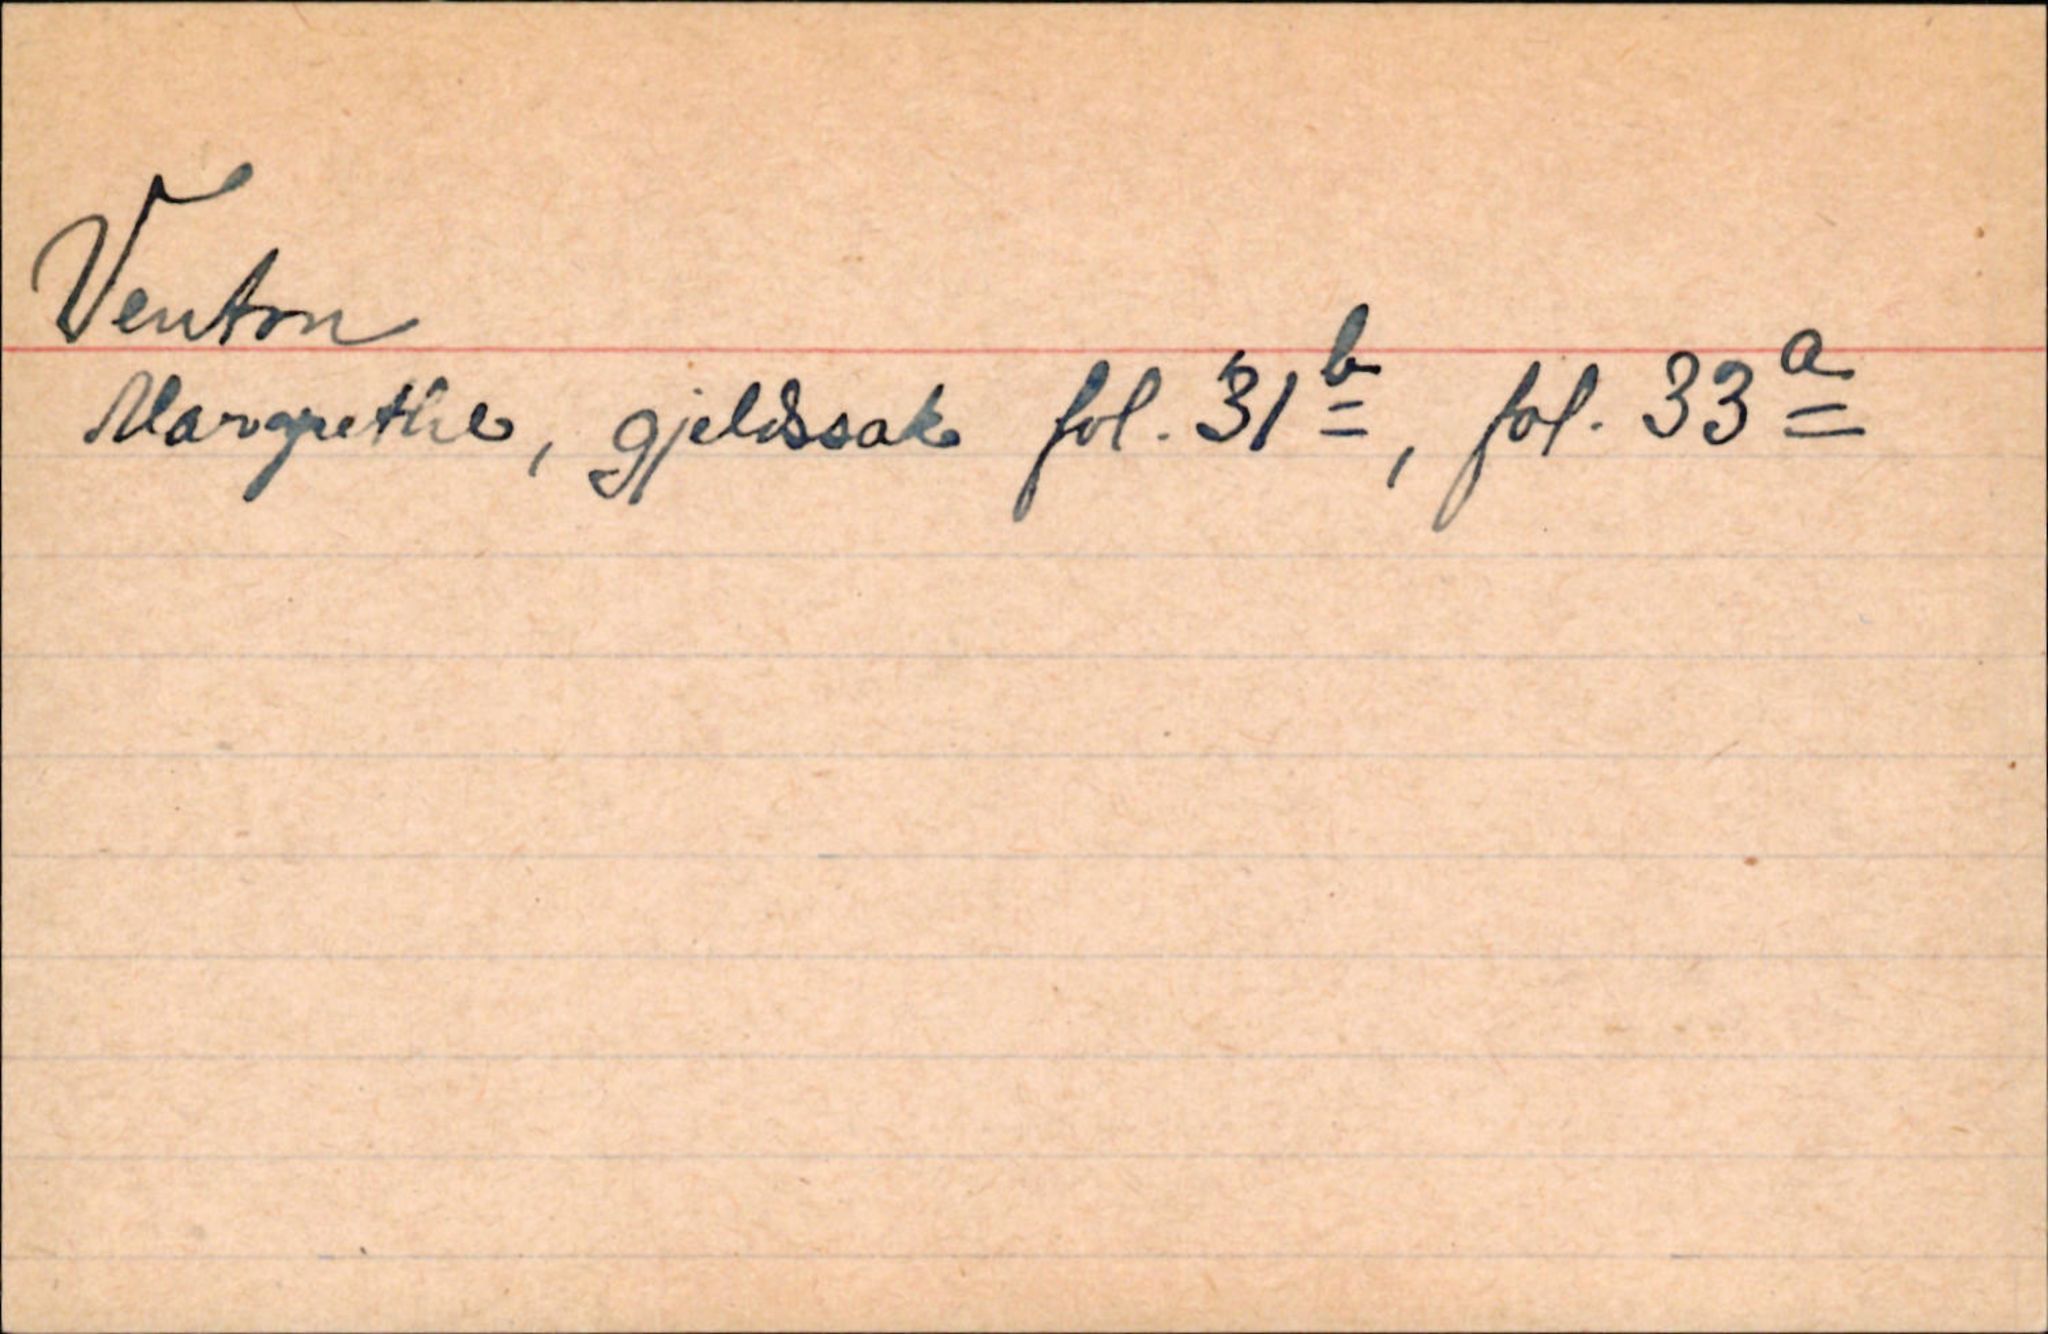 Venton
Margrethe, gjeldssak fol. 31b, fol. 33a